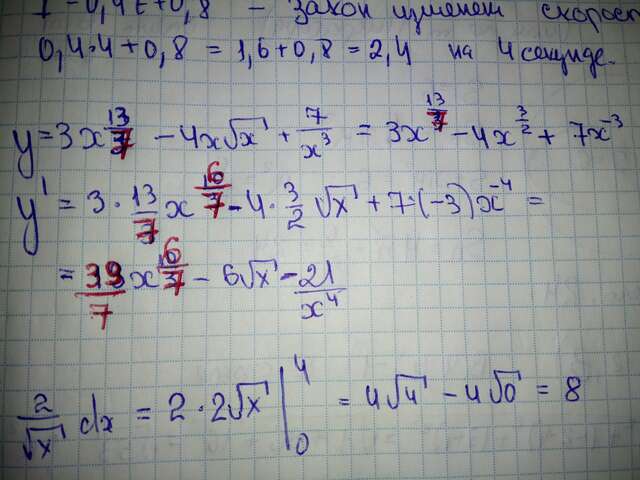 – 0,4t + 0,8 – закон изменен скорос
0,4·4 + 0,8 = 1,6 + 0,8 = 2,4 на 4 секунде.
y = 3x^(13/7) – 4x√x + 7/x³ = 3x^(13/7) – 4x^(3/2) + 7x⁻³
y' = 3 · 13/7 x^(6/7) – 4 · 3/2 √x + 7·(–3)x⁻⁴ =
= 39/7 x^(6/7) – 6√x – 21/x⁴
2/√x dx = 2 · 2√x |₀⁴ = 4√4 – 4√0 = 8